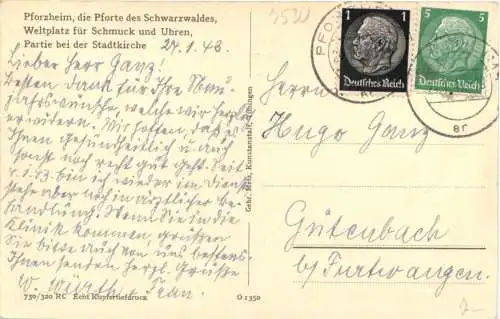 Pforzheim, die Pforte des Schwarzwaldes,
Weltplatz für Schmuck und Uhren,
Partie bei der Stadtkirche
24.1.43.
Lieber Herr Ganz!
Besten Dank für Ihre Neu-
jahrswünsche, welche wir herzl.
erwidern. Wir hoffen, daß es
Ihnen gesundheitlich u. auch
sonst noch recht gut geht. Seit
4.1.43. bin ich wieder im Dienst
stehe aber noch in ärztlicher Be-
handlung. Wenn Sie in die
Klinik kommen, grüßen
Sie bitte auch von uns bestens.
Ihnen senden herzl. Grüße
W. Würth u. Frau.
730/320 RC Echt Kupfertiefdruck
O 1350
Gebr. Metz, Kunstanstalt, Tübingen
1 1
Deutsches Reich
5 5
Deutsches Reich
Herrn
Hugo Ganz
Gütenbach
b/ Furtwangen.